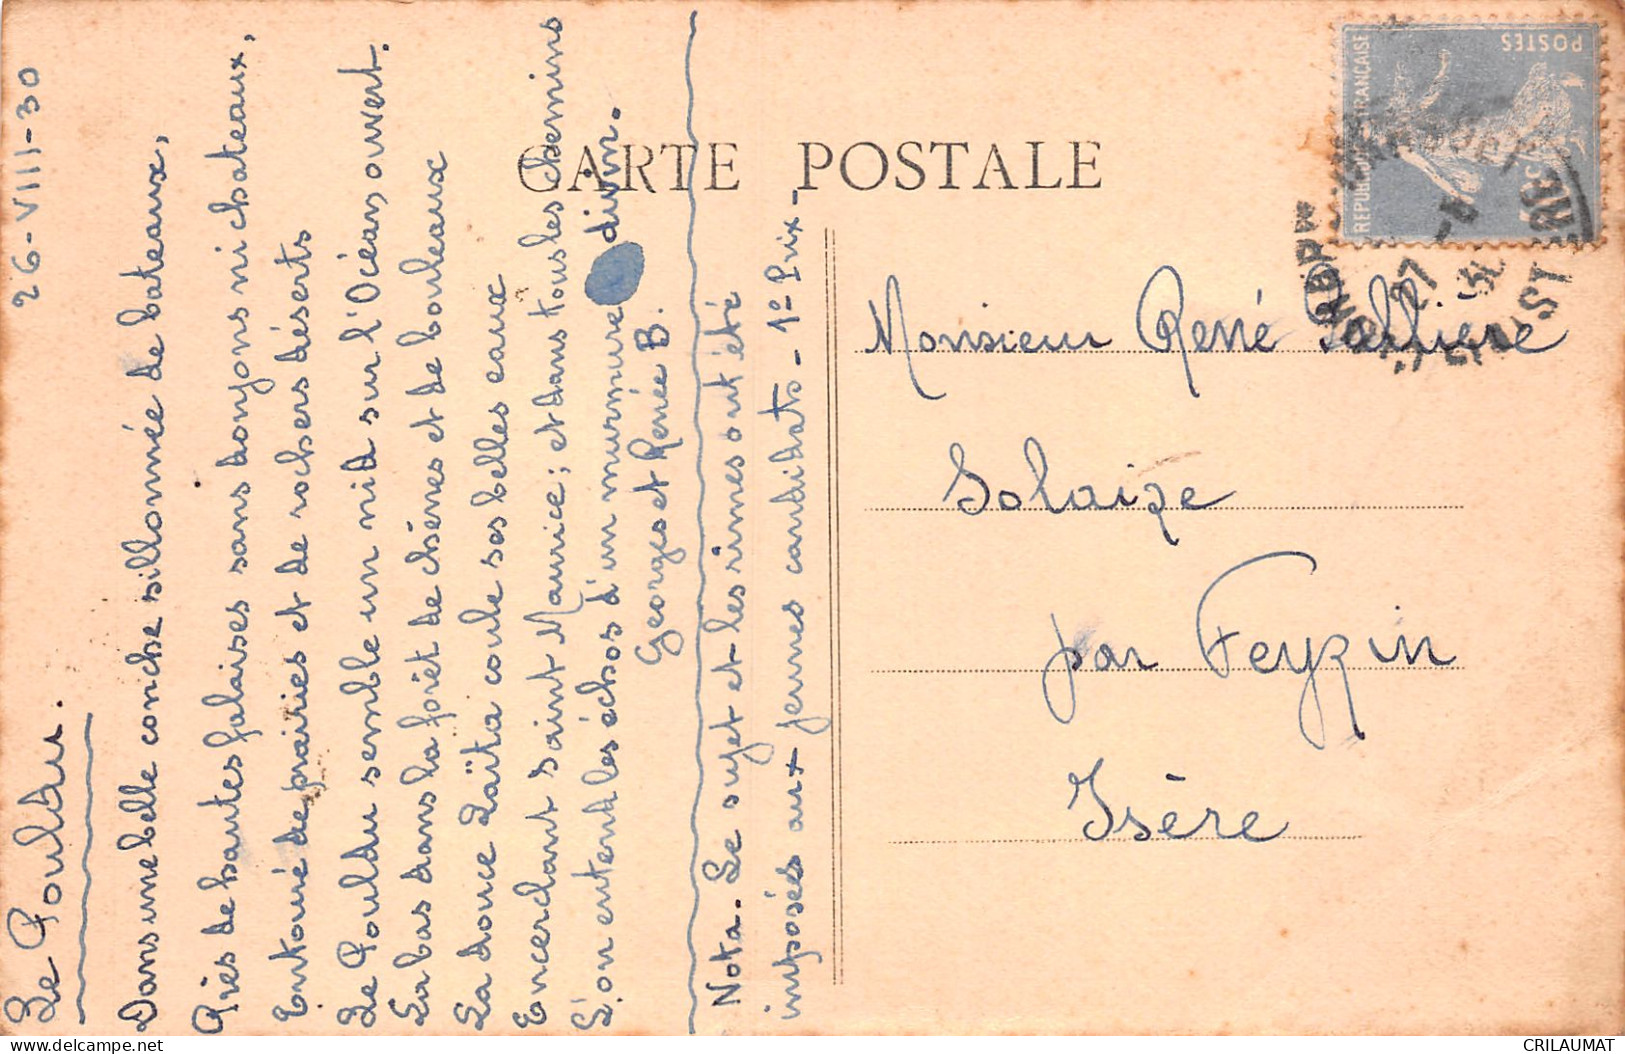 26-VIII-30
Le Pouldu.
Dans une belle conche sillonnée de bateaux,
Près de hautes falaises sans donjons ni chateaux,
Entouré de prairies et de rochers déserts
Le Pouldu semble un nid sur l'Océan ouvert.
La bas dans la forêt de chênes et de bouleaux
La douce Laïta coule ses belles eaux
Encerclant Saint Maurice; et dans tous les chemins
L'on entend les échos d'un murmure divin.
Georges et Renée B.
Nota. Le sujet et les rimes ont été
imposés aux jeunes candidats - 1º Prix -
CARTE POSTALE
POSTES
REPUBLIQUE FRANCAISE
27
Monsieur René
Solaize
par Feyzin
Isère
CRILAUMAT